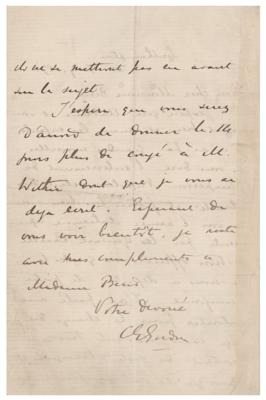 ne se mettront pas en avant
sur le sujet
J'espère que vous serez
D'accord de donner le
jours plus de congé à M.
que je vous ai
deja ecrit. Esperant de
vous voir bientôt, je reste
avec mes compliments a
Madame
Votre devoué
CGGordon